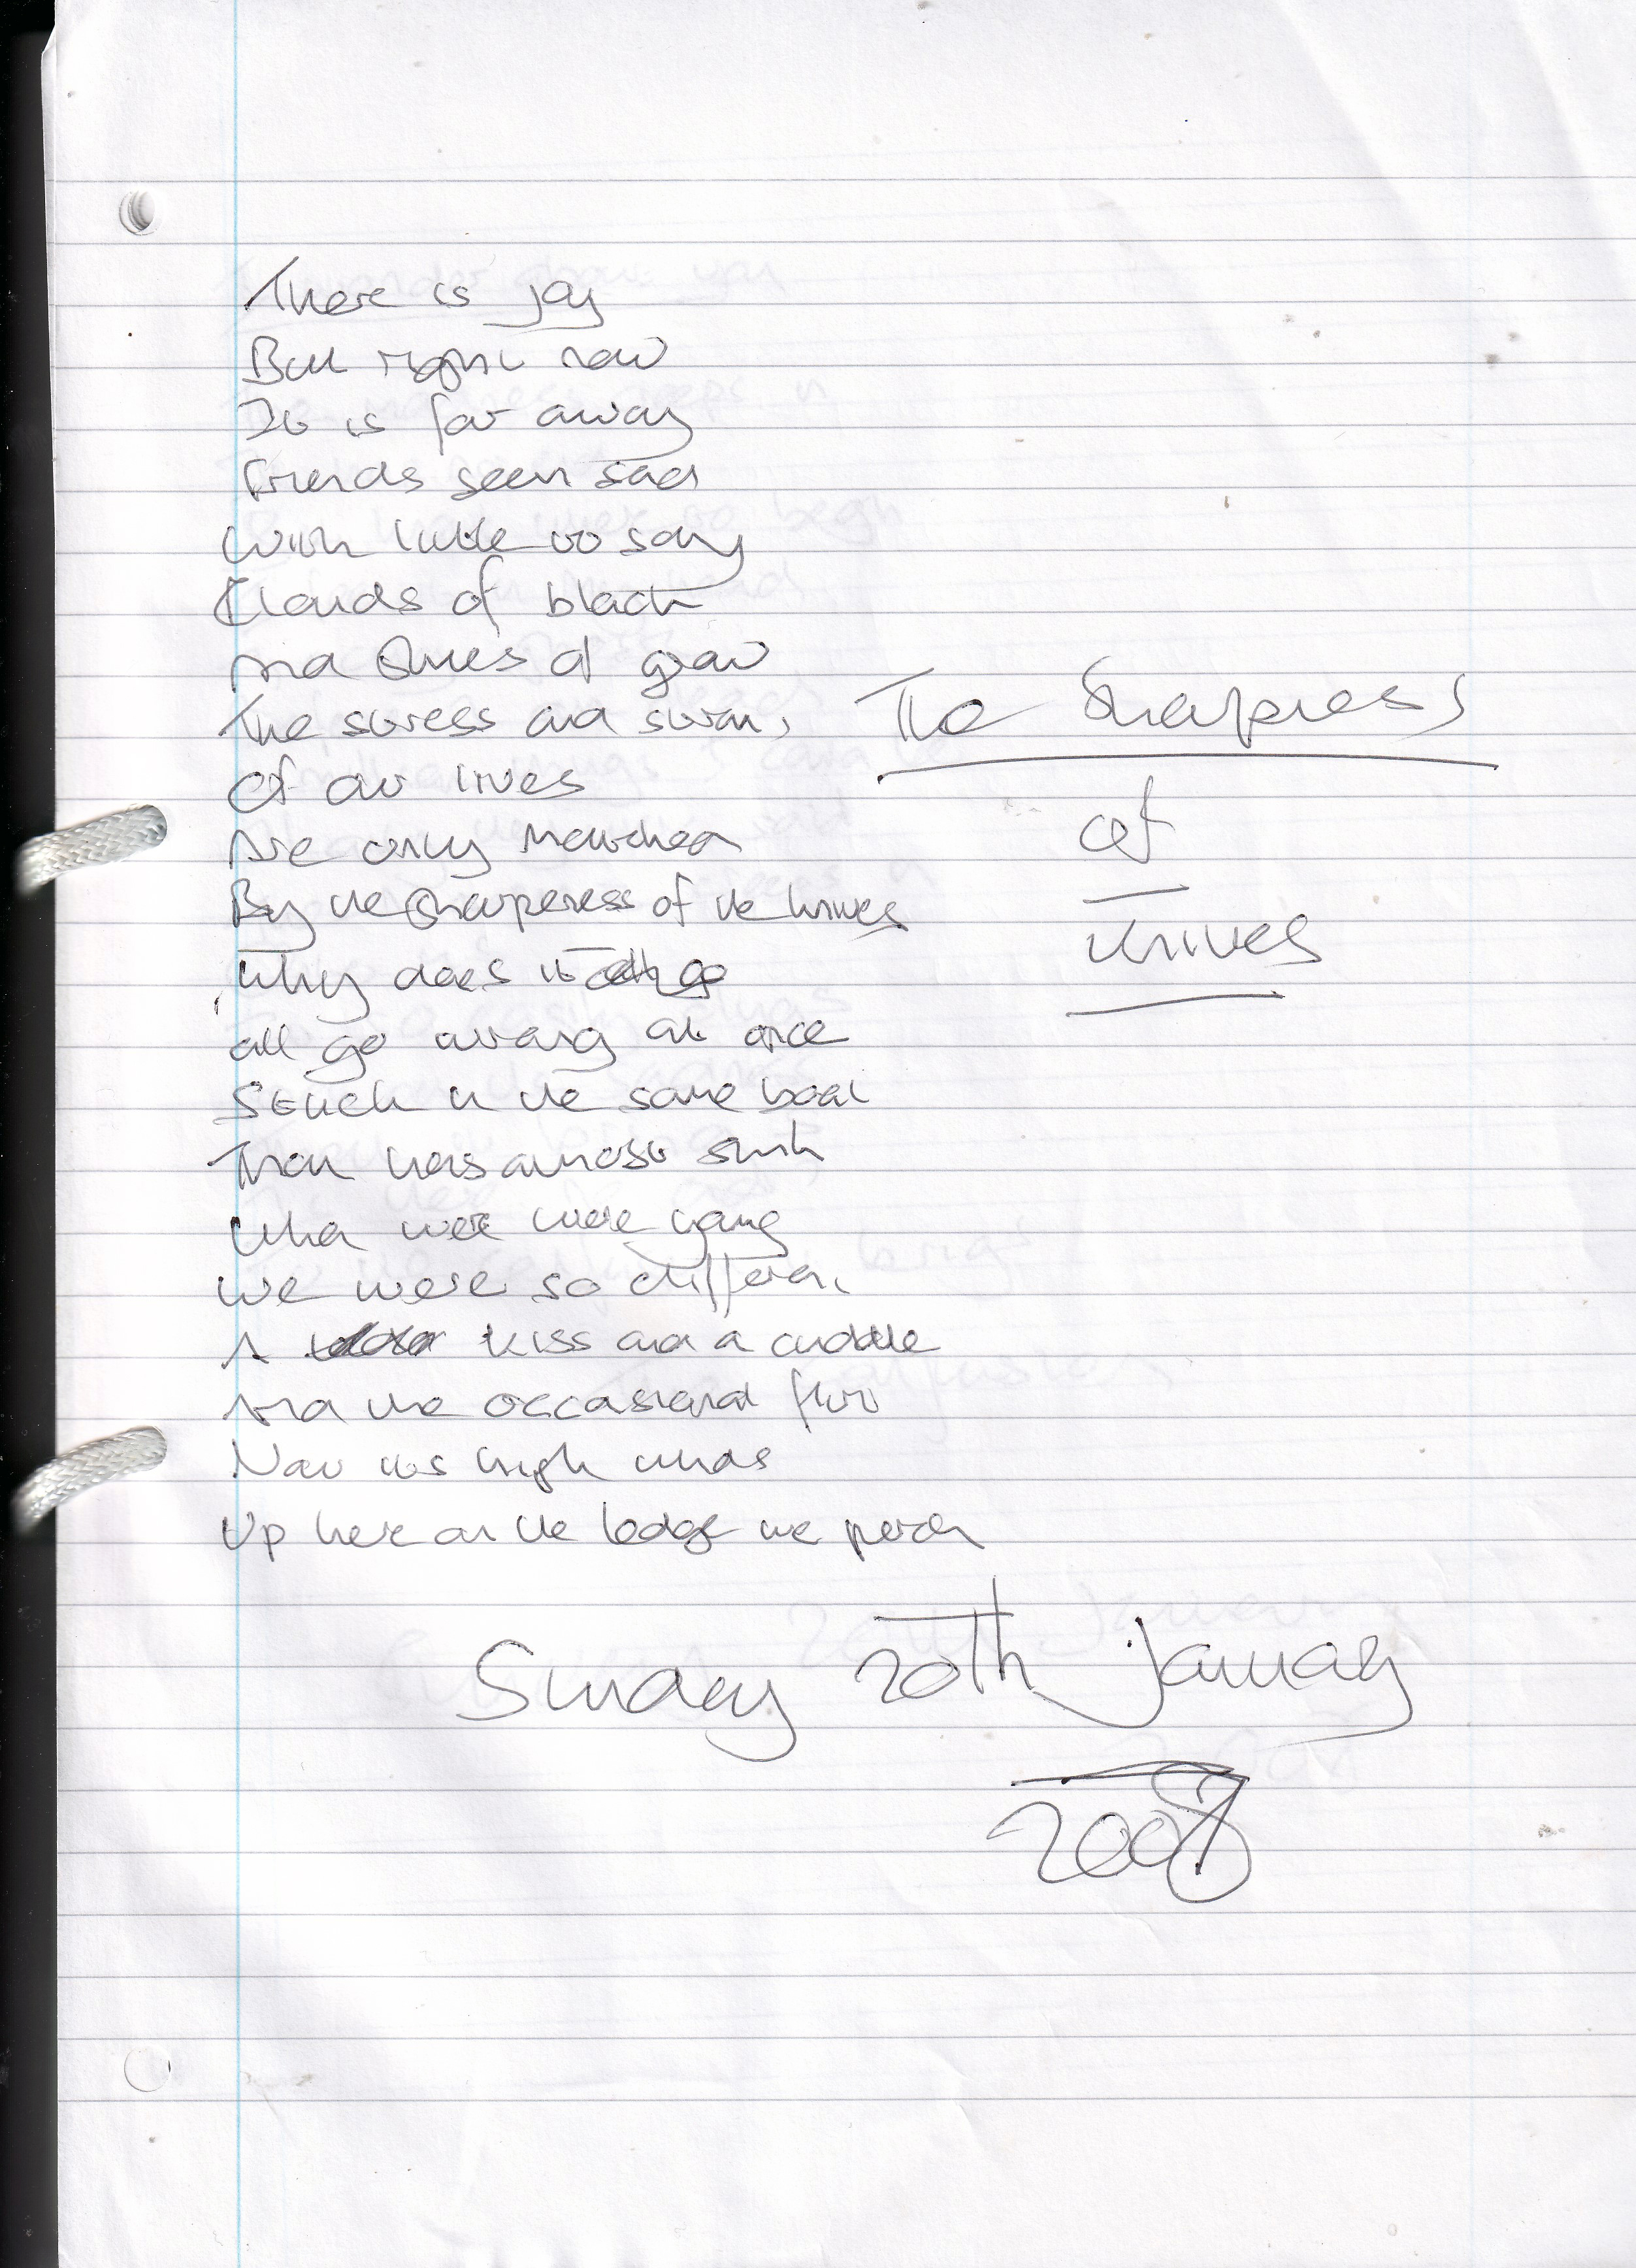 There is joy
But right now
It is far away
Friends seem sad
With little to say
Clouds of black
And Skies of grey
The stress and strain,
Of our lives
Are only matched
By the Sharpness of the knives
Why does it all go
all go wrong at once
Stuck in the same boat
That has almost sunk
When were were young
We were so different
A kiss and a cuddle
And the occasional flirt
Now its high winds
Up here on the ledge we perch
The Sharpness
of
knives
Sunday 20th January
2008